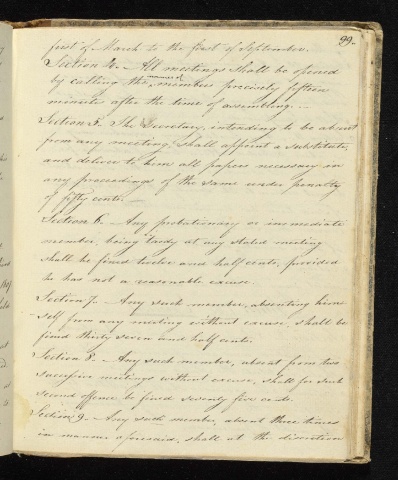 99.
first of March to the first of September.
Section 4. - All meetings shall be opened
by calling the names of members precisely fifteen
minutes after the time of assembling. -
Section 5. The Secretary, intending to be absent
from any meeting, shall appoint a substitute,
and deliver to him all papers necessary in
any proceedings of the same under penalty
of fifty cents. -
Section 6. - Any probationary or immediate
member, being tardy at any stated meeting
shall be fined twelve and half cents, provided
he has not a reasonable excuse.
Section 7. - Any such member, absenting him-
-self from any meeting without excuse, shall be
fined thirty seven and half cents.
Section 8. - Any such member, absent from two
successive meetings without excuse, shall for such
second offence be fined seventy five cents.
Section 9. - Any such member, absent three times
in manner aforesaid, shall at the discretion